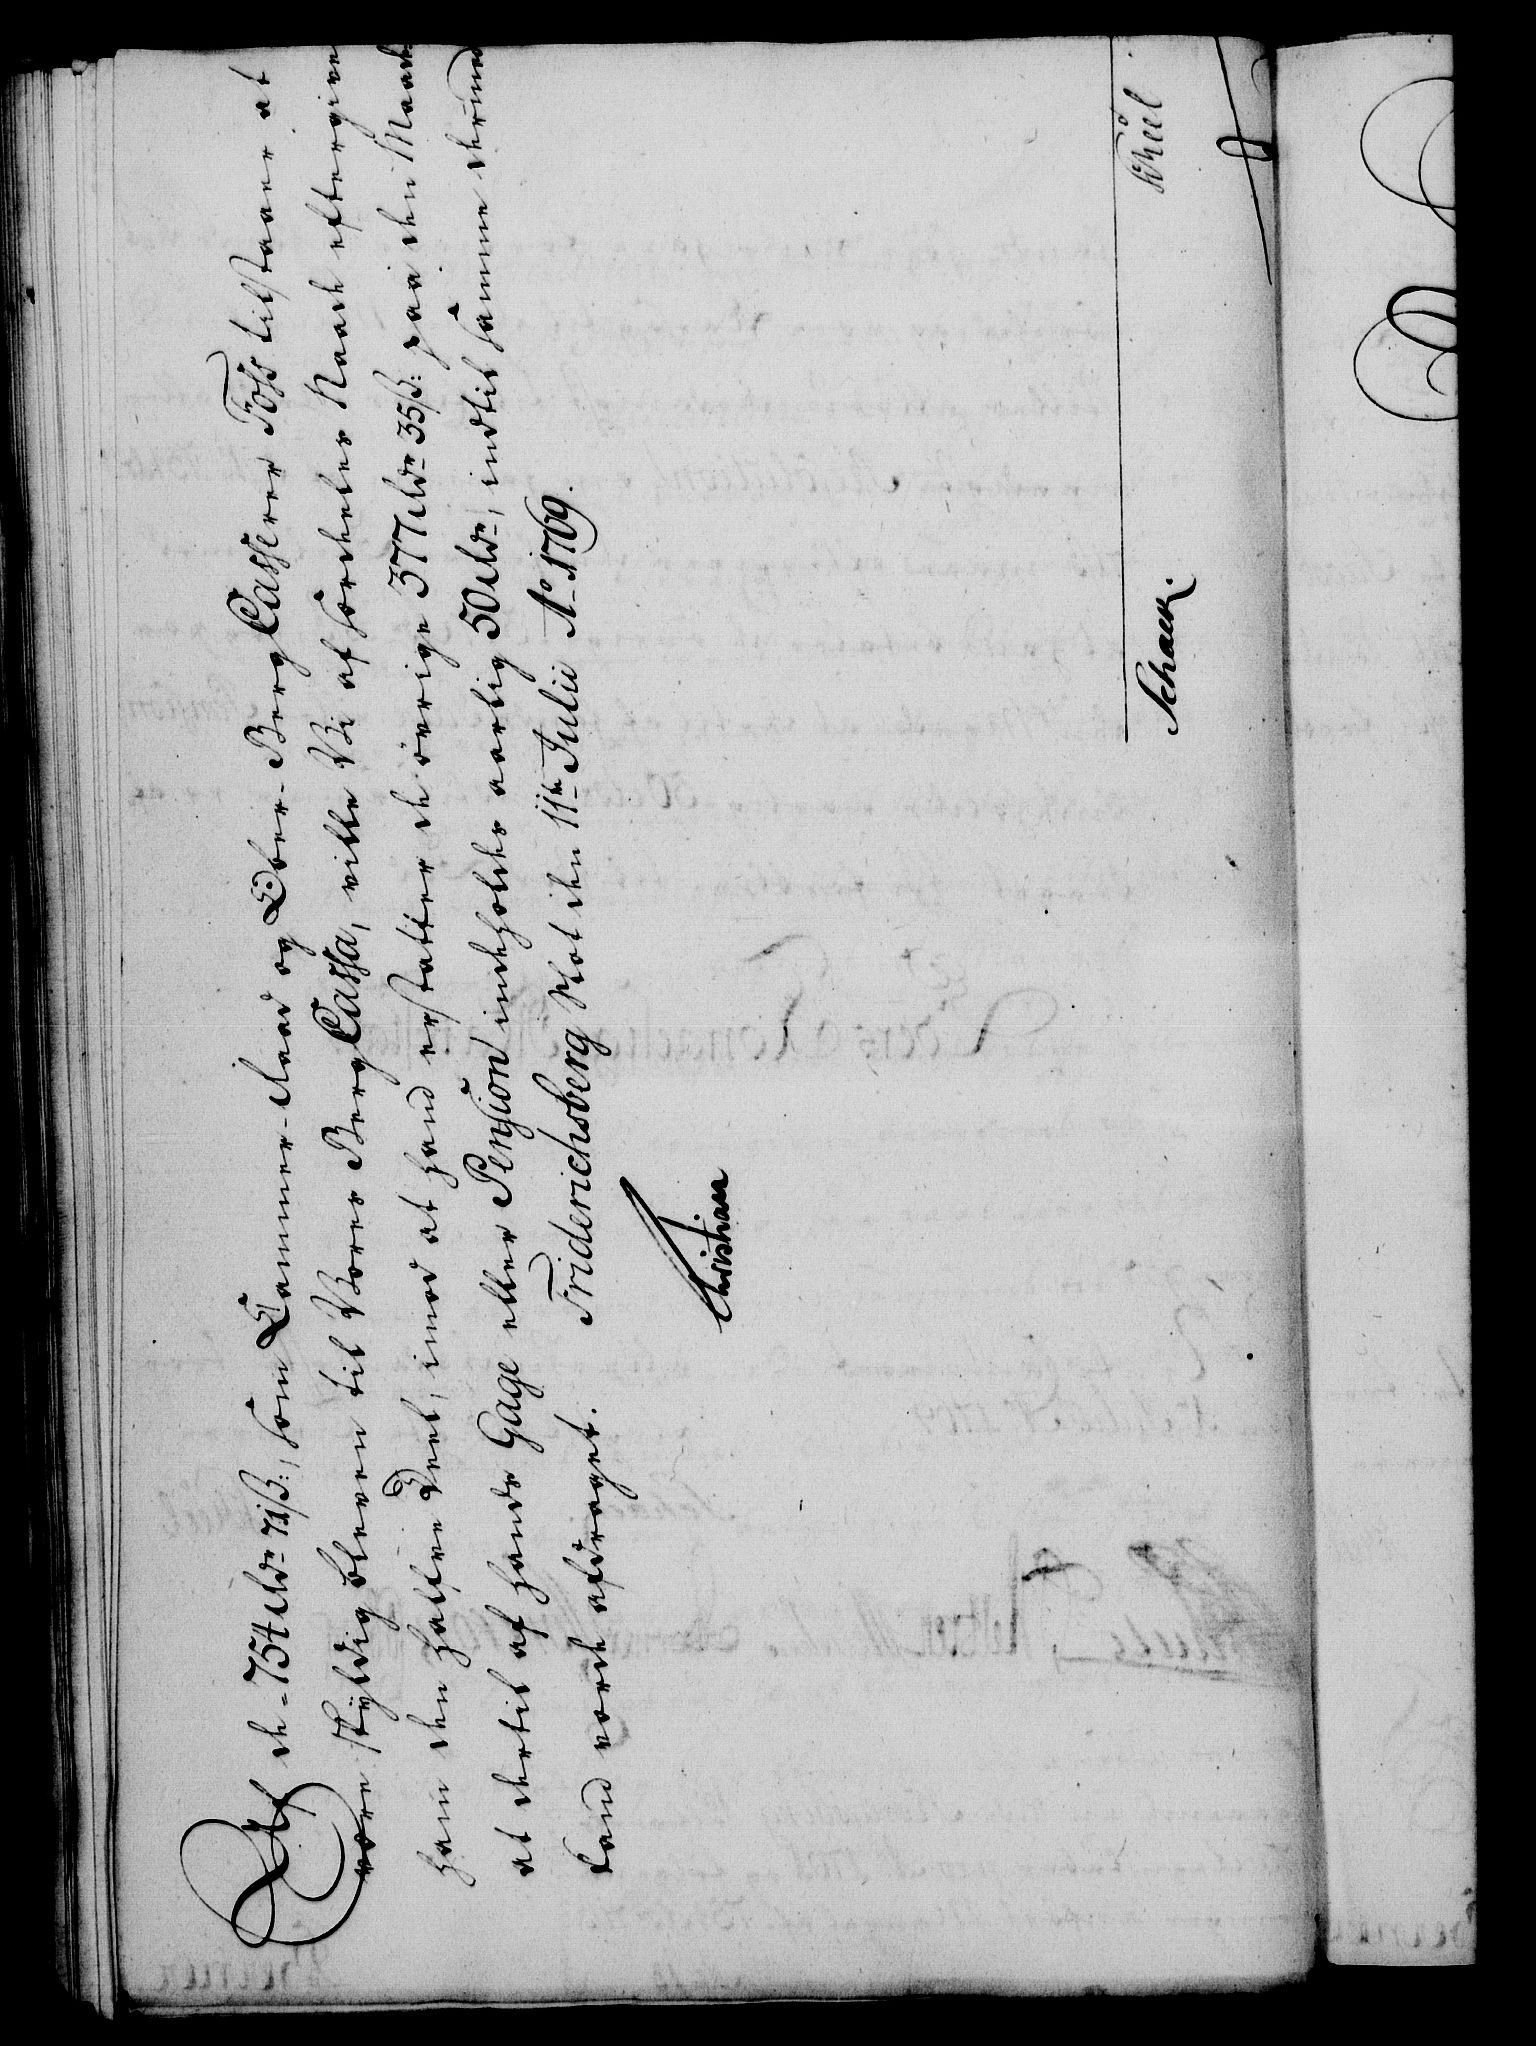 Af de 754 Rdr 71 ß:, som Cammer-Raad og Ober-Berg Casserer Foss tilstaaer at
være skyldig bleven til Vores Berg Cassa, ville Vi af særdeles Naade eftergive
ham den halfve Deel, imod at hand erstatter de övrige 377 Rdr 35 ß: paa den Maade
at dertil af hands Gage eller Pension indeholdes aarlig 50 Rdr, indtil samme derimod
kand vorde afdraget. Friderichsberg Slot den 11te Julii Ao 1769.
Christian
Schack.
Thiel